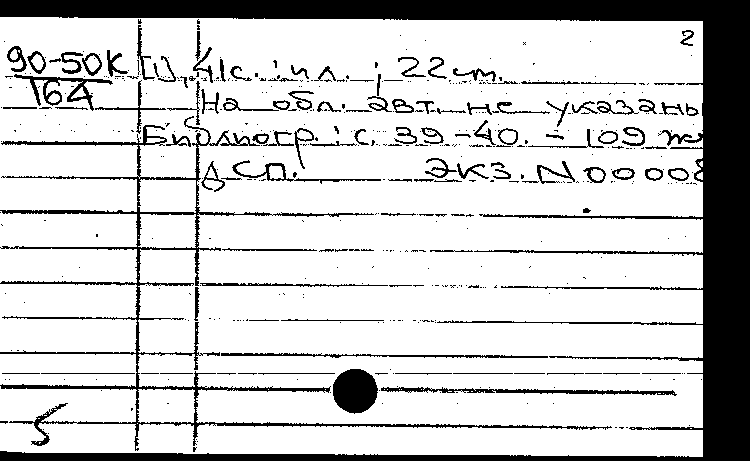 2
90-50К [1], 41с. : ил. ; 22 см.
164
На обл. авт. не указаны
Библиогр. : с. 39-40. - 109
ДСП. Экз. N 00008
5